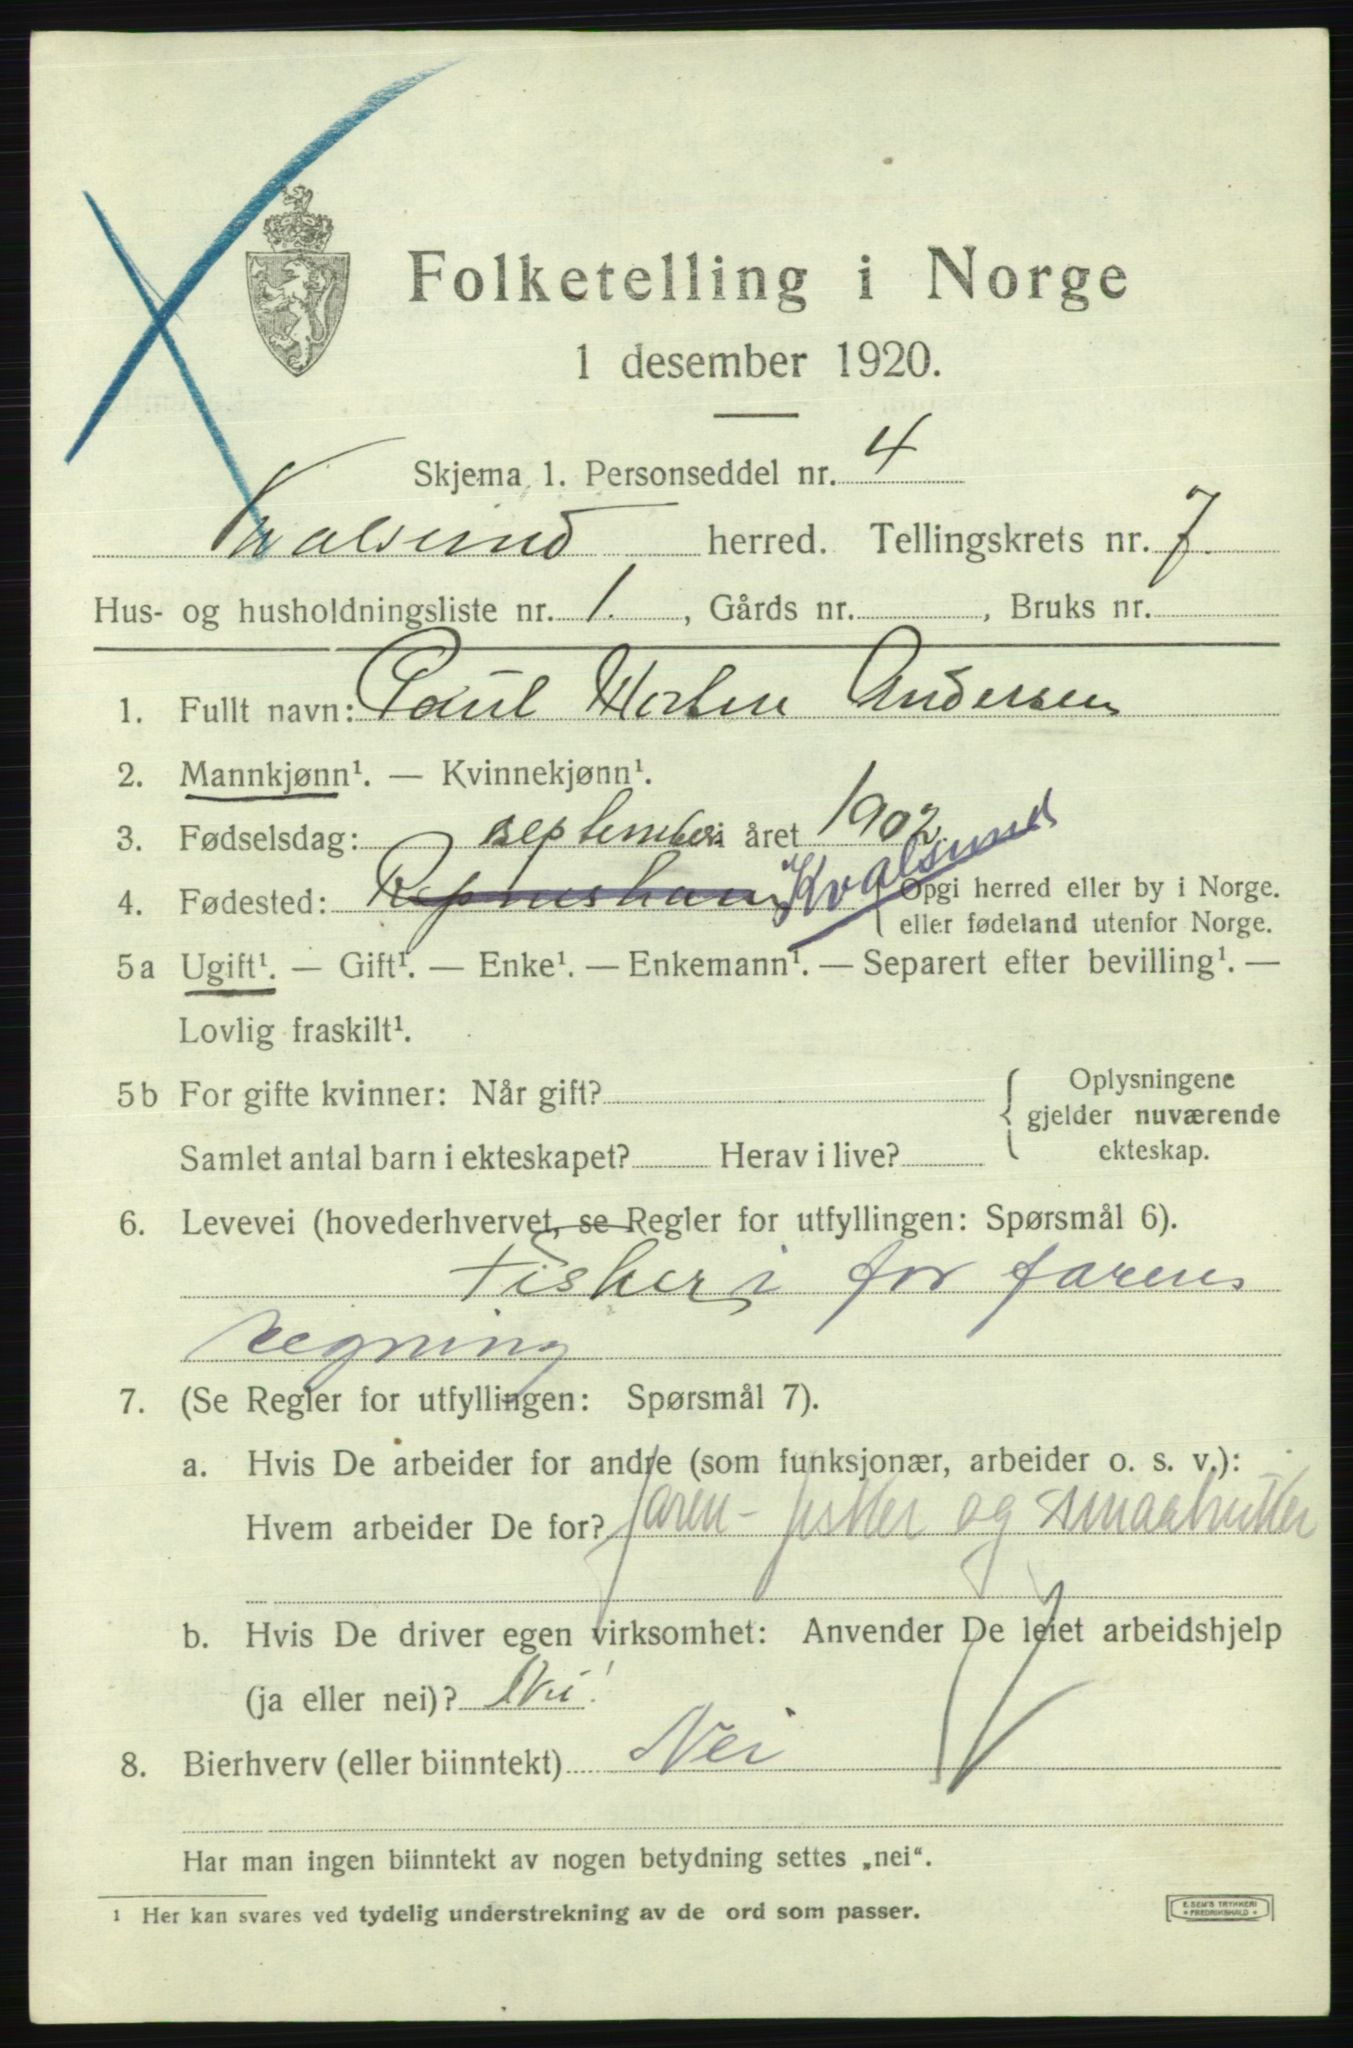 Folketelling i Norge
1 desember 1920.
Skjema 1. Personseddel nr. 4
Kvalsund herred. Tellingskrets nr. 7.
Hus- og husholdningsliste nr. 1. , Gårds nr. , Bruks nr.
1. Fullt navn: Paul Morten Andersen
2. Mannkjønn¹. — Kvinnekjønn¹.
3. Fødselsdag: september i året 1902
4. Fødested: Kvalsund Opgi herred eller by i Norge.
eller fødeland utenfor Norge.
5a Ugift¹. — Gift¹. — Enke¹. — Enkemann¹. — Separert efter bevilling¹. —
Lovlig fraskilt¹.
5b For gifte kvinner: Når gift? Oplysningene
gjelder nuværende
Samlet antal barn i ekteskapet? Herav i live? ekteskap.
6. Levevei (hovederhvervet, se Regler for utfyllingen: Spørsmål 6).
Fiskeri for farens
regning
7. (Se Regler for utfyllingen: Spørsmål 7).
a. Hvis De arbeider for andre (som funksjonær, arbeider o. s. v.):
Hvem arbeider De for? faren - fisker og smaabruker
b. Hvis De driver egen virksomhet: Anvender De leiet arbeidshjelp
(ja eller nei)? Nei!
8. Bierhverv (eller biinntekt) Nei
Har man ingen biinntekt av nogen betydning settes „nei“.
¹ Her kan svares ved tydelig understrekning av de ord som passer.
E. SEM'S TRYKKERI
FREDRIKSHALD